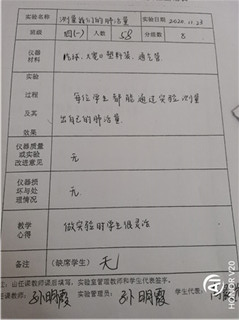 实验名称 测量我们的肺活量 实验日期 2020.11.23
班级 四(一) 人数 58 分组数 8
仪器
材料 瓶, 大, 塑料袋, 通气管
实验
过程
及其
效果
每位学生都能通过实验测量
出自己的肺活量
仪器质量
或实验
改进意见
无
仪器损
坏与处
理情况
无
教学
心得
做实验时学生很灵活
备注 (缺席学生) 无
注: 由任课教师课后填写, 实验室管理教师和学生代表签字。
任课教师: 孙明霞 实验管理员: 孙明霞 学生代表:
HONOR V20